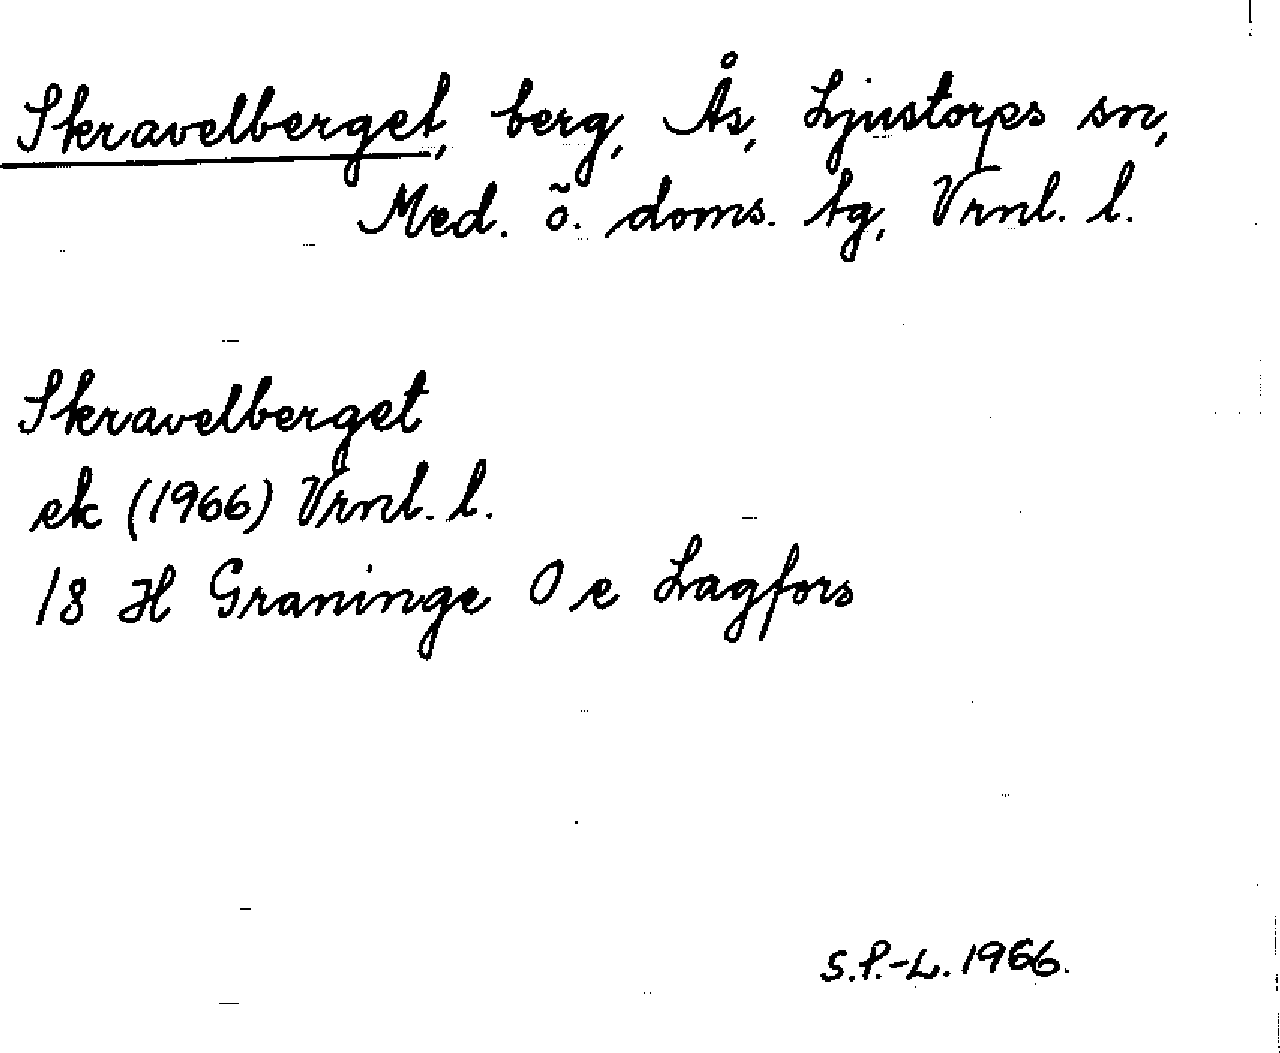 Skravelberget, berg, Ås, Ljustorps sn,
Med. ö. doms. tg, Vrnl. l.
Skravelberget
ek (1966) Vrnl. l.
18 H Graninge O e Lagfors
S.P.-L. 1966.